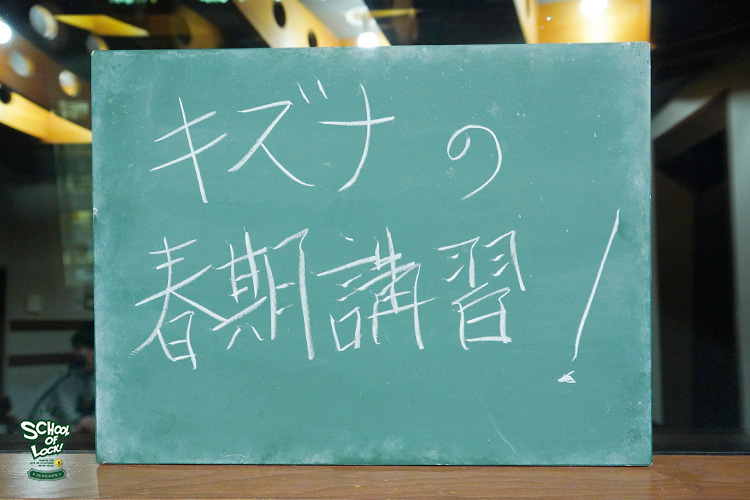 キズナの
春期講習!
SCHOOL
OF
LOCK!